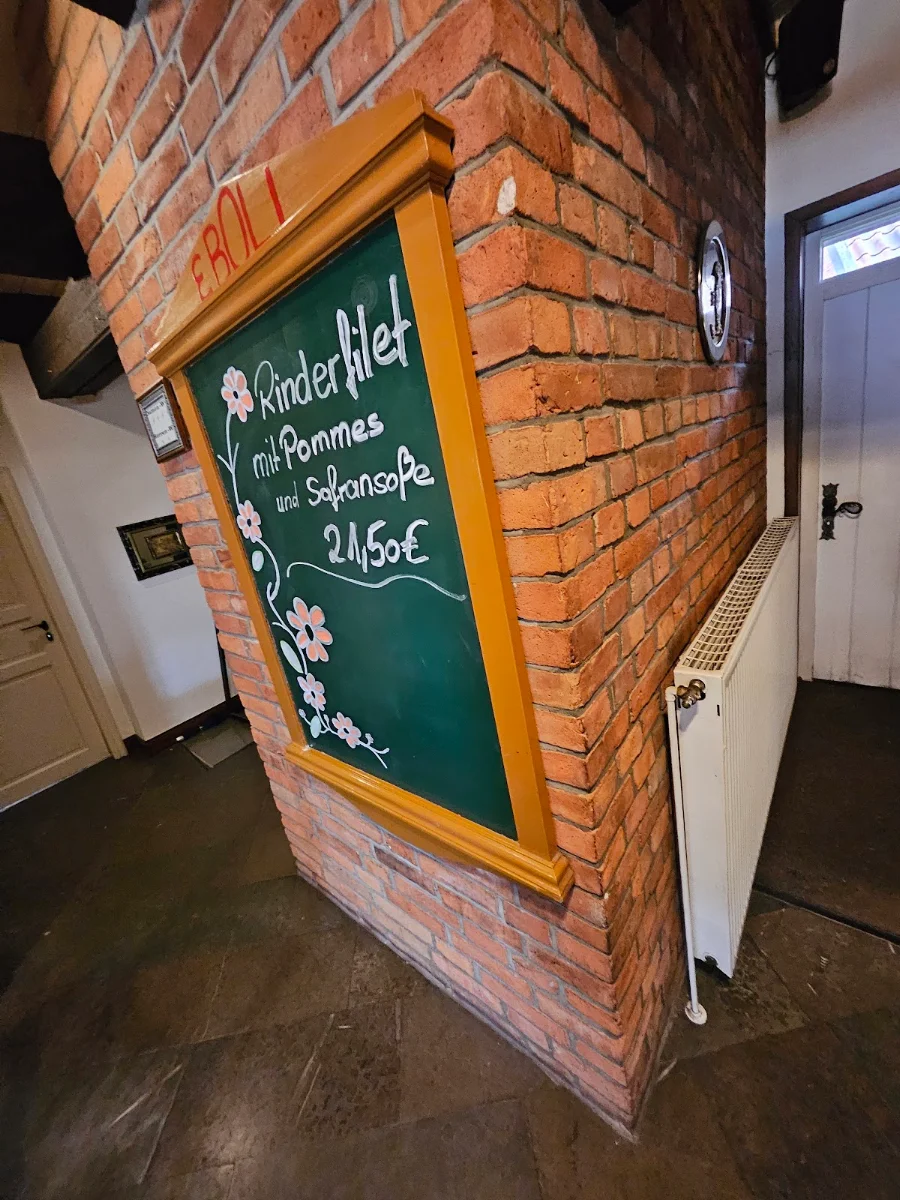 EBOLI
Rinderfilet
mit Pommes
und Safransoße
21,50€